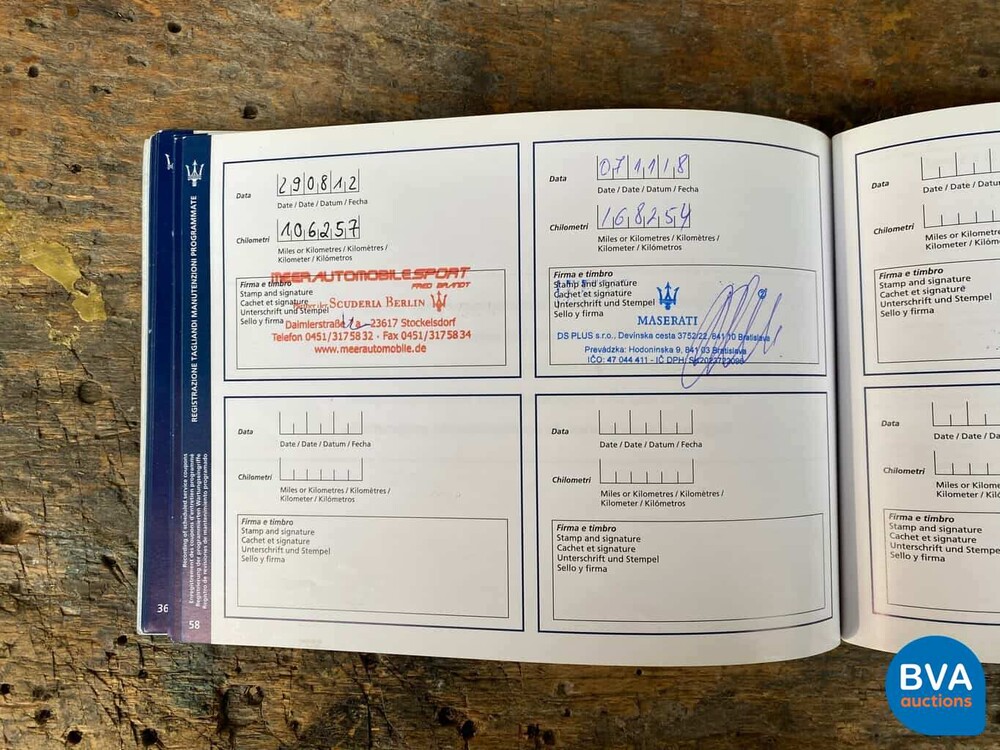 REGISTRAZIONE TAGLIANDI MANUTENZIONI PROGRAMMATE
Recording of scheduled service coupons
Enregistrement des coupons d'entretien programmé
Registrierung der programmierten Wartungseingriffe
Registro de revisiones de mantenimiento programado
36
58
Data
290812
Date / Date / Datum / Fecha
Chilometri
106257
Miles or Kilometres / Kilomètres /
Kilometer / Kilómetros
Firma e timbro
Stamp and signature
Cachet et signature
Unterschrift und Stempel
Sello y firma
MEERAUTOMOBILE.SPORT
FRED BRANDT
SCUDERIA BERLIN
Daimlerstraße 23617 Stockelsdorf
Telefon 0451/3175832 - Fax 0451/3175834
www.meerautomobile.de
Data
071118
Date / Date / Datum / Fecha
Chilometri
168254
Miles or Kilometres / Kilomètres /
Kilometer / Kilómetros
Firma e timbro
Stamp and signature
Cachet et signature
Unterschrift und Stempel
Sello y firma
MASERATI
DS PLUS s.r.o., Devínska cesta 3752/22, 841 10 Bratislava
Prevádzka: Hodonínska 9, 841 03 Bratislava
IČO: 47 044 411 - IČ DPH:
Data
Date / Date / Datum / Fecha
Chilometri
Miles or Kilometres / Kilomètres /
Kilometer / Kilómetros
Firma e timbro
Stamp and signature
Cachet et signature
Unterschrift und Stempel
Sello y firma
Data
Date / Date / Datum / Fecha
Chilometri
Miles or Kilometres / Kilomètres /
Kilometer / Kilómetros
Firma e timbro
Stamp and signature
Cachet et signature
Unterschrift und Stempel
Sello y firma
Data
Date / Date / Datum / Fecha
Chilometri
Miles or Kilometres / Kilomètres /
Kilometer / Kilómetros
Firma e timbro
Stamp and signature
Cachet et signature
Unterschrift und Stempel
Sello y firma
Data
Date / Date / Da
Chilometri
Miles or Kilomet
Kilometer / Kiló
Firma e timbro
Stamp and signature
Cachet et signature
Unterschrift und Stempel
Sello y firma
BVA
auctions